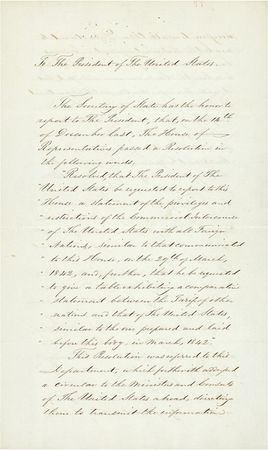 To The President of The United States.
The Secretary of State has the honor to
report to The President, that, on the 14th
of December last, The House of
Representatives passed a Resolution in
the following words,
"Resolved, that The President of The
"United States be requested to report to this
"House a statement of the privileges and
"restrictions of the Commercial Intercourse
"of The United States with all Foreign
"Nations, similar to that communicated
"to this House, on the 29th of March,
"1842, and, further, that he be requested
"to give a table exhibiting a comparative
"statement between the Tariff of other
"nations and that of The United States,
"similar to the one prepared and laid
"before this body, in March, 1842."
This Resolution was referred to this
Department, which forthwith addressed
a circular to the Ministers and Consuls
of The United States abroad, directing
them to transmit the information